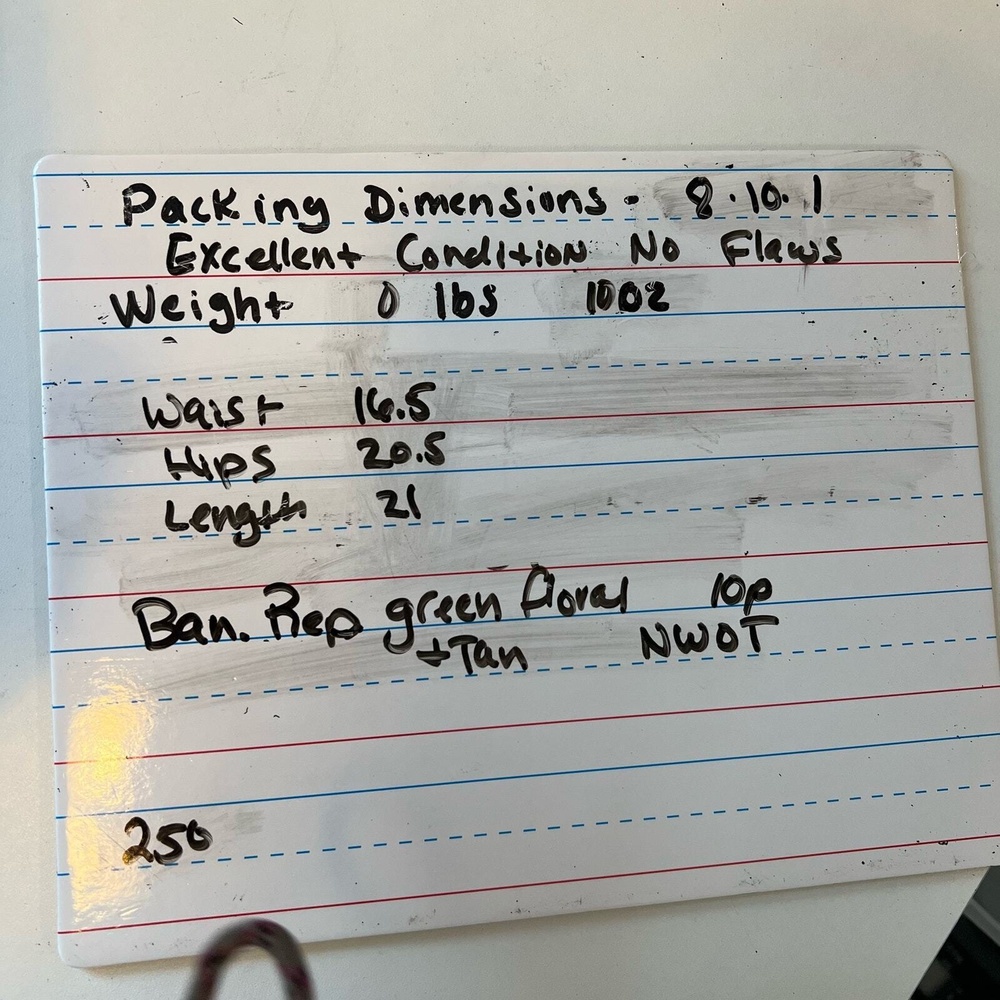 Packing Dimensions - 8.10.1
Excellent Condition No Flaws
Weight 0 lbs 10oz
Waist 16.5
Hips 20.5
Length 21
Ban. Rep green floral 10p
+Tan NWOT
250